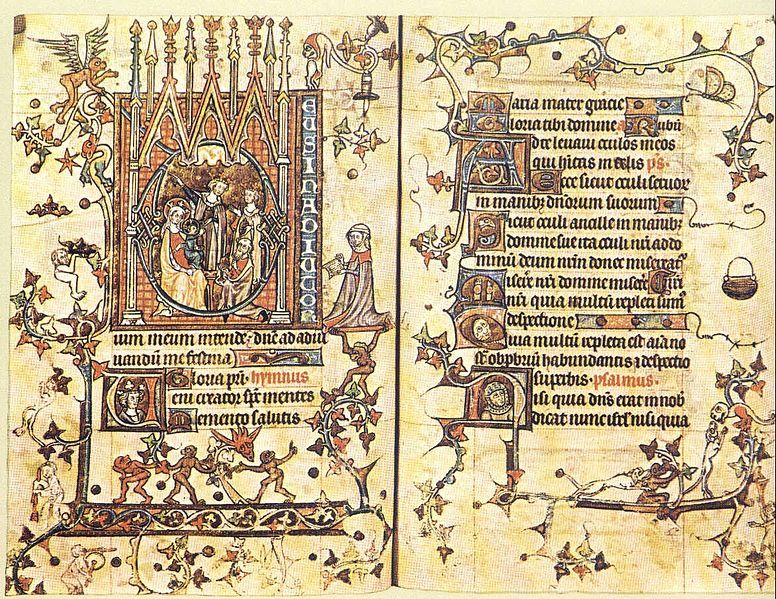 EUSINADIUTOR
ium meum intende; dne ad adiu
uandū me festina
Gloria pri. hymnus
eni creator spc mentes
Memento salutis
Maria mater gracie
Gloria tibi domine a Rubū
Ad te leuaui oculos meos
qui hitas in celis ps
Ecce sicut oculi seruor
in manibz dnorum suorum
Sicut oculi ancille in manibz
domine sue ita oculi nri ad do
minū deum nrm donec misereat
Miserere nri domine misere
nri quia multū repleti sum
despectione
Quia multū repleta est aia no
st obpbriū habundantis & despectio
superbis. psalmus.
Nisi quia dns erat in nob
dicat nunc isrl nisi quia